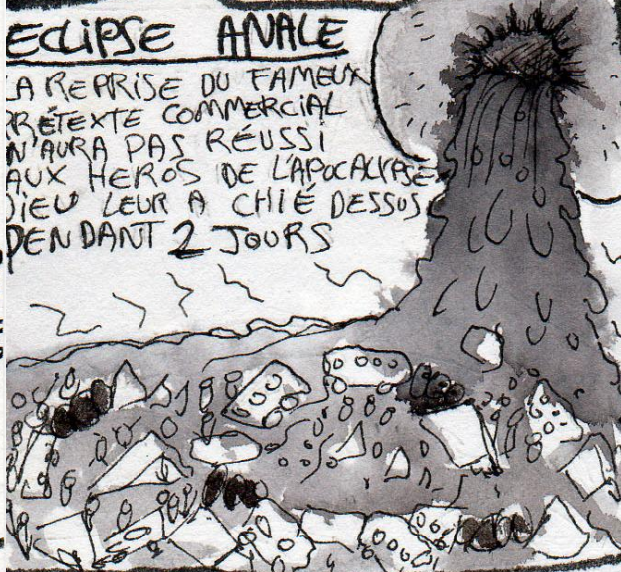 ECLIPSE ANALE
LA REPRISE DU FAMEUX
PRÉTEXTE COMMERCIAL
N'AURA PAS RÉUSSI
AUX HEROS DE L'APOCALYPSE
DIEU LEUR A CHIÉ DESSUS
PENDANT 2 JOURS